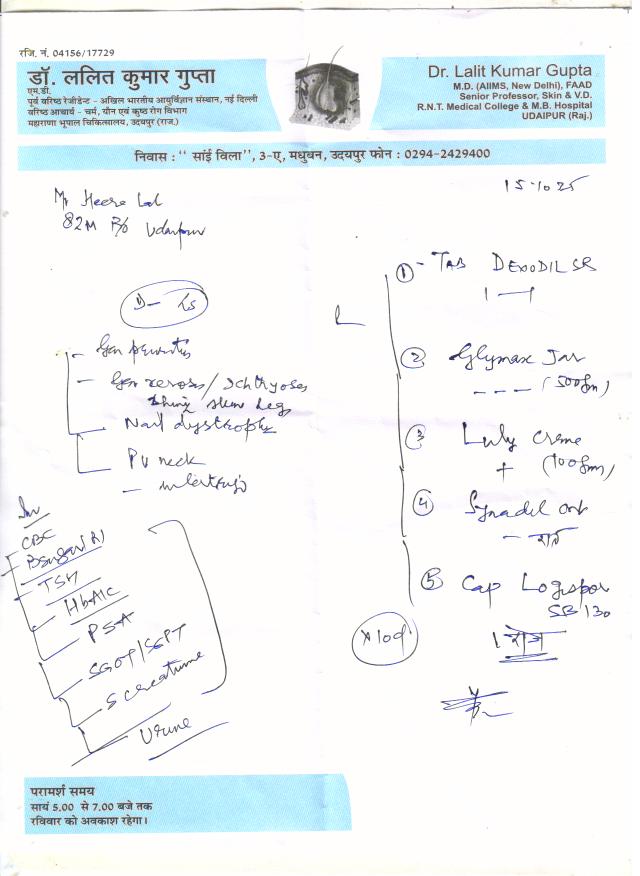 रजि. नं. 04156/17729
डॉ. ललित कुमार गुप्ता
एम.डी.
पूर्व वरिष्ठ रेजीडेन्ट - अखिल भारतीय आयुर्विज्ञान संस्थान, नई दिल्ली
वरिष्ठ आचार्य - चर्म, यौन एवं कुष्ठ रोग विभाग
महाराणा भूपाल चिकित्सालय, उदयपुर (राज.)
Dr. Lalit Kumar Gupta
M.D. (AIIMS, New Delhi), FAAD
Senior Professor, Skin & V.D.
R.N.T. Medical College & M.B. Hospital
UDAIPUR (Raj.)
निवास : '' सांई विला'', 3-ए, मधुबन, उदयपुर फोन : 0294-2429400
15.10.25
Mr Heera Lal
82M R/o Udaipur
- Gen pruritus
- Gen xerosis/Ichthyoses
shiny skin legs
- Nail dystrophy
neck
Inv
CBC
Bsugar (R)
TSH
HbA1c
PSA
SGOT/SGPT
S creatinine
Urine
① - TAB DEXODIL SR
1 — 1
② Glymax Jar
- - - (500gm)
③ Luly Creme
+ (100gm)
④ Synadel
⑤ Cap Logispor
SB 130
x 10d
1 रोज
परामर्श समय
सायं 5.00 से 7.00 बजे तक
रविवार को अवकाश रहेगा।